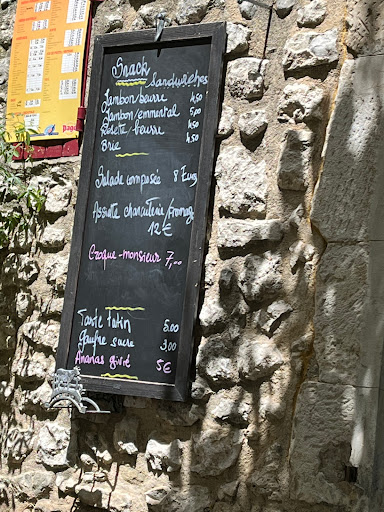 Snack
Sandwiches
Jambon/beurre 4,50
Jambon/emmental 5,00
Rosette/beurre 4,50
Brie 4,50
Salade composée 8 Euros
Assiette charcuterie/fromage
12 €
Croque-monsieur 7,00
Tarte Tatin 5.00
Gaufre sucre 3.00
Ananas givré 5€